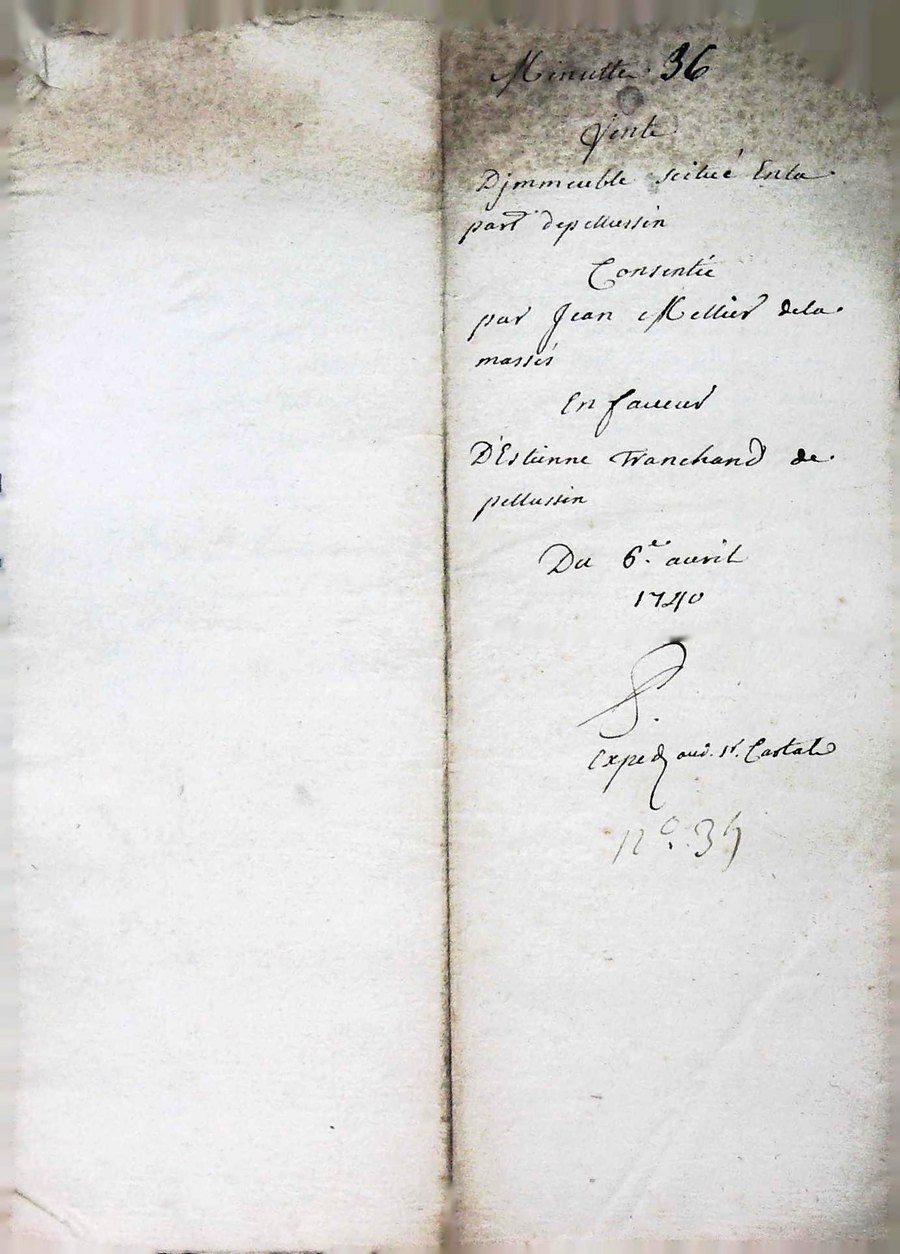 Minutte 36
Vente
Djmmeuble scitué Enla
part depellussin
Consentie
par Jean Mellier dela
massés
En faveur
D'Estienne Tranchand de
pellussin
Du 6.e avril
1740
Exped aud. sr.
n° 34